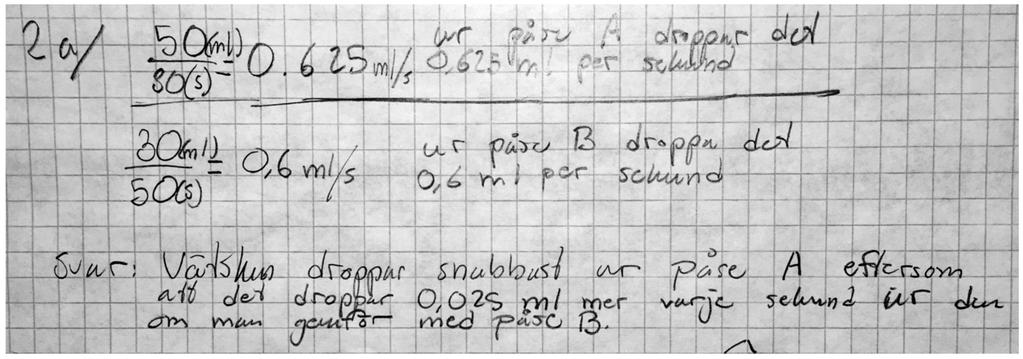 2 a/ 50(ml)/80(s) = 0.625 ml/s ur påse A droppar det
0,625 ml per sekund
30(ml)/50(s) = 0,6 ml/s ur påse B droppa det
0,6 ml per sekund
Svar: Vätskan droppar snabbast ur påse A eftersom
att det droppar 0,025 ml mer varje sekund ur den
om man jämför med påse B.